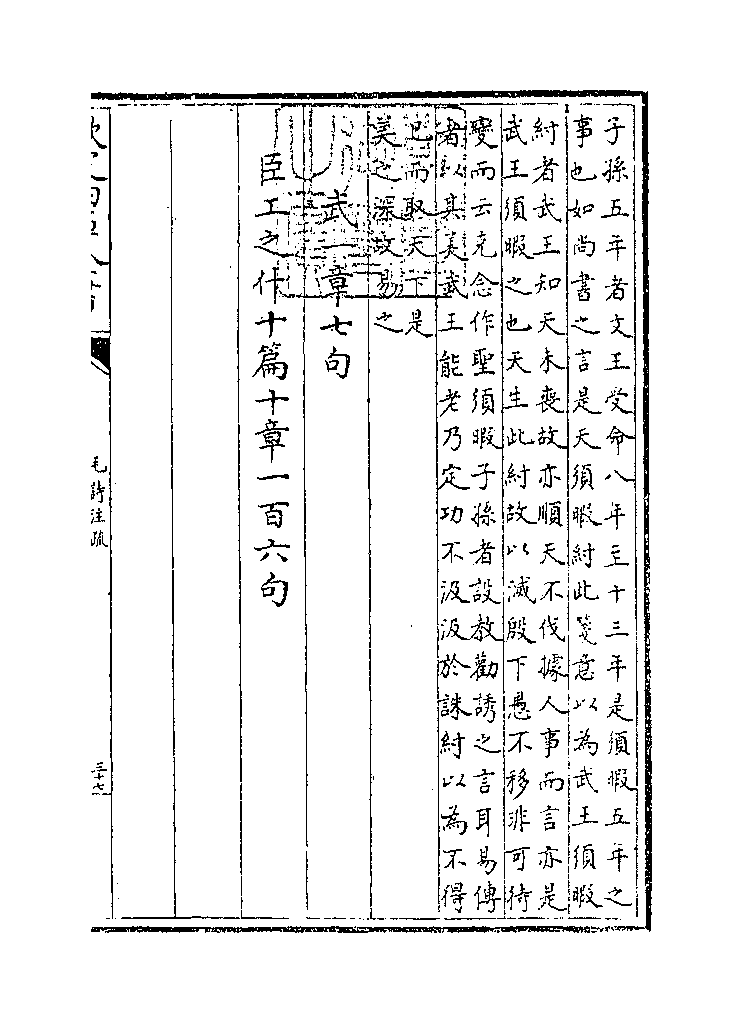 子孫五年者文王受命八年至十三年是須暇五年之
事也如尚書之言是天須暇紂此箋意以為武王須暇
紂者武王知天未喪故亦順天不伐據人事而言亦是
武王須暇之也天生此紂故以滅殷下愚不移非可待
變而云克念作聖須暇子孫者設教勸誘之言耳易傳
者以其美武王能老乃定功不汲汲於誅紂以為不得
已而取天下是
美之深故易之
武一章七句
臣工之什十篇十章一百六句
毛詩注疏
三十七